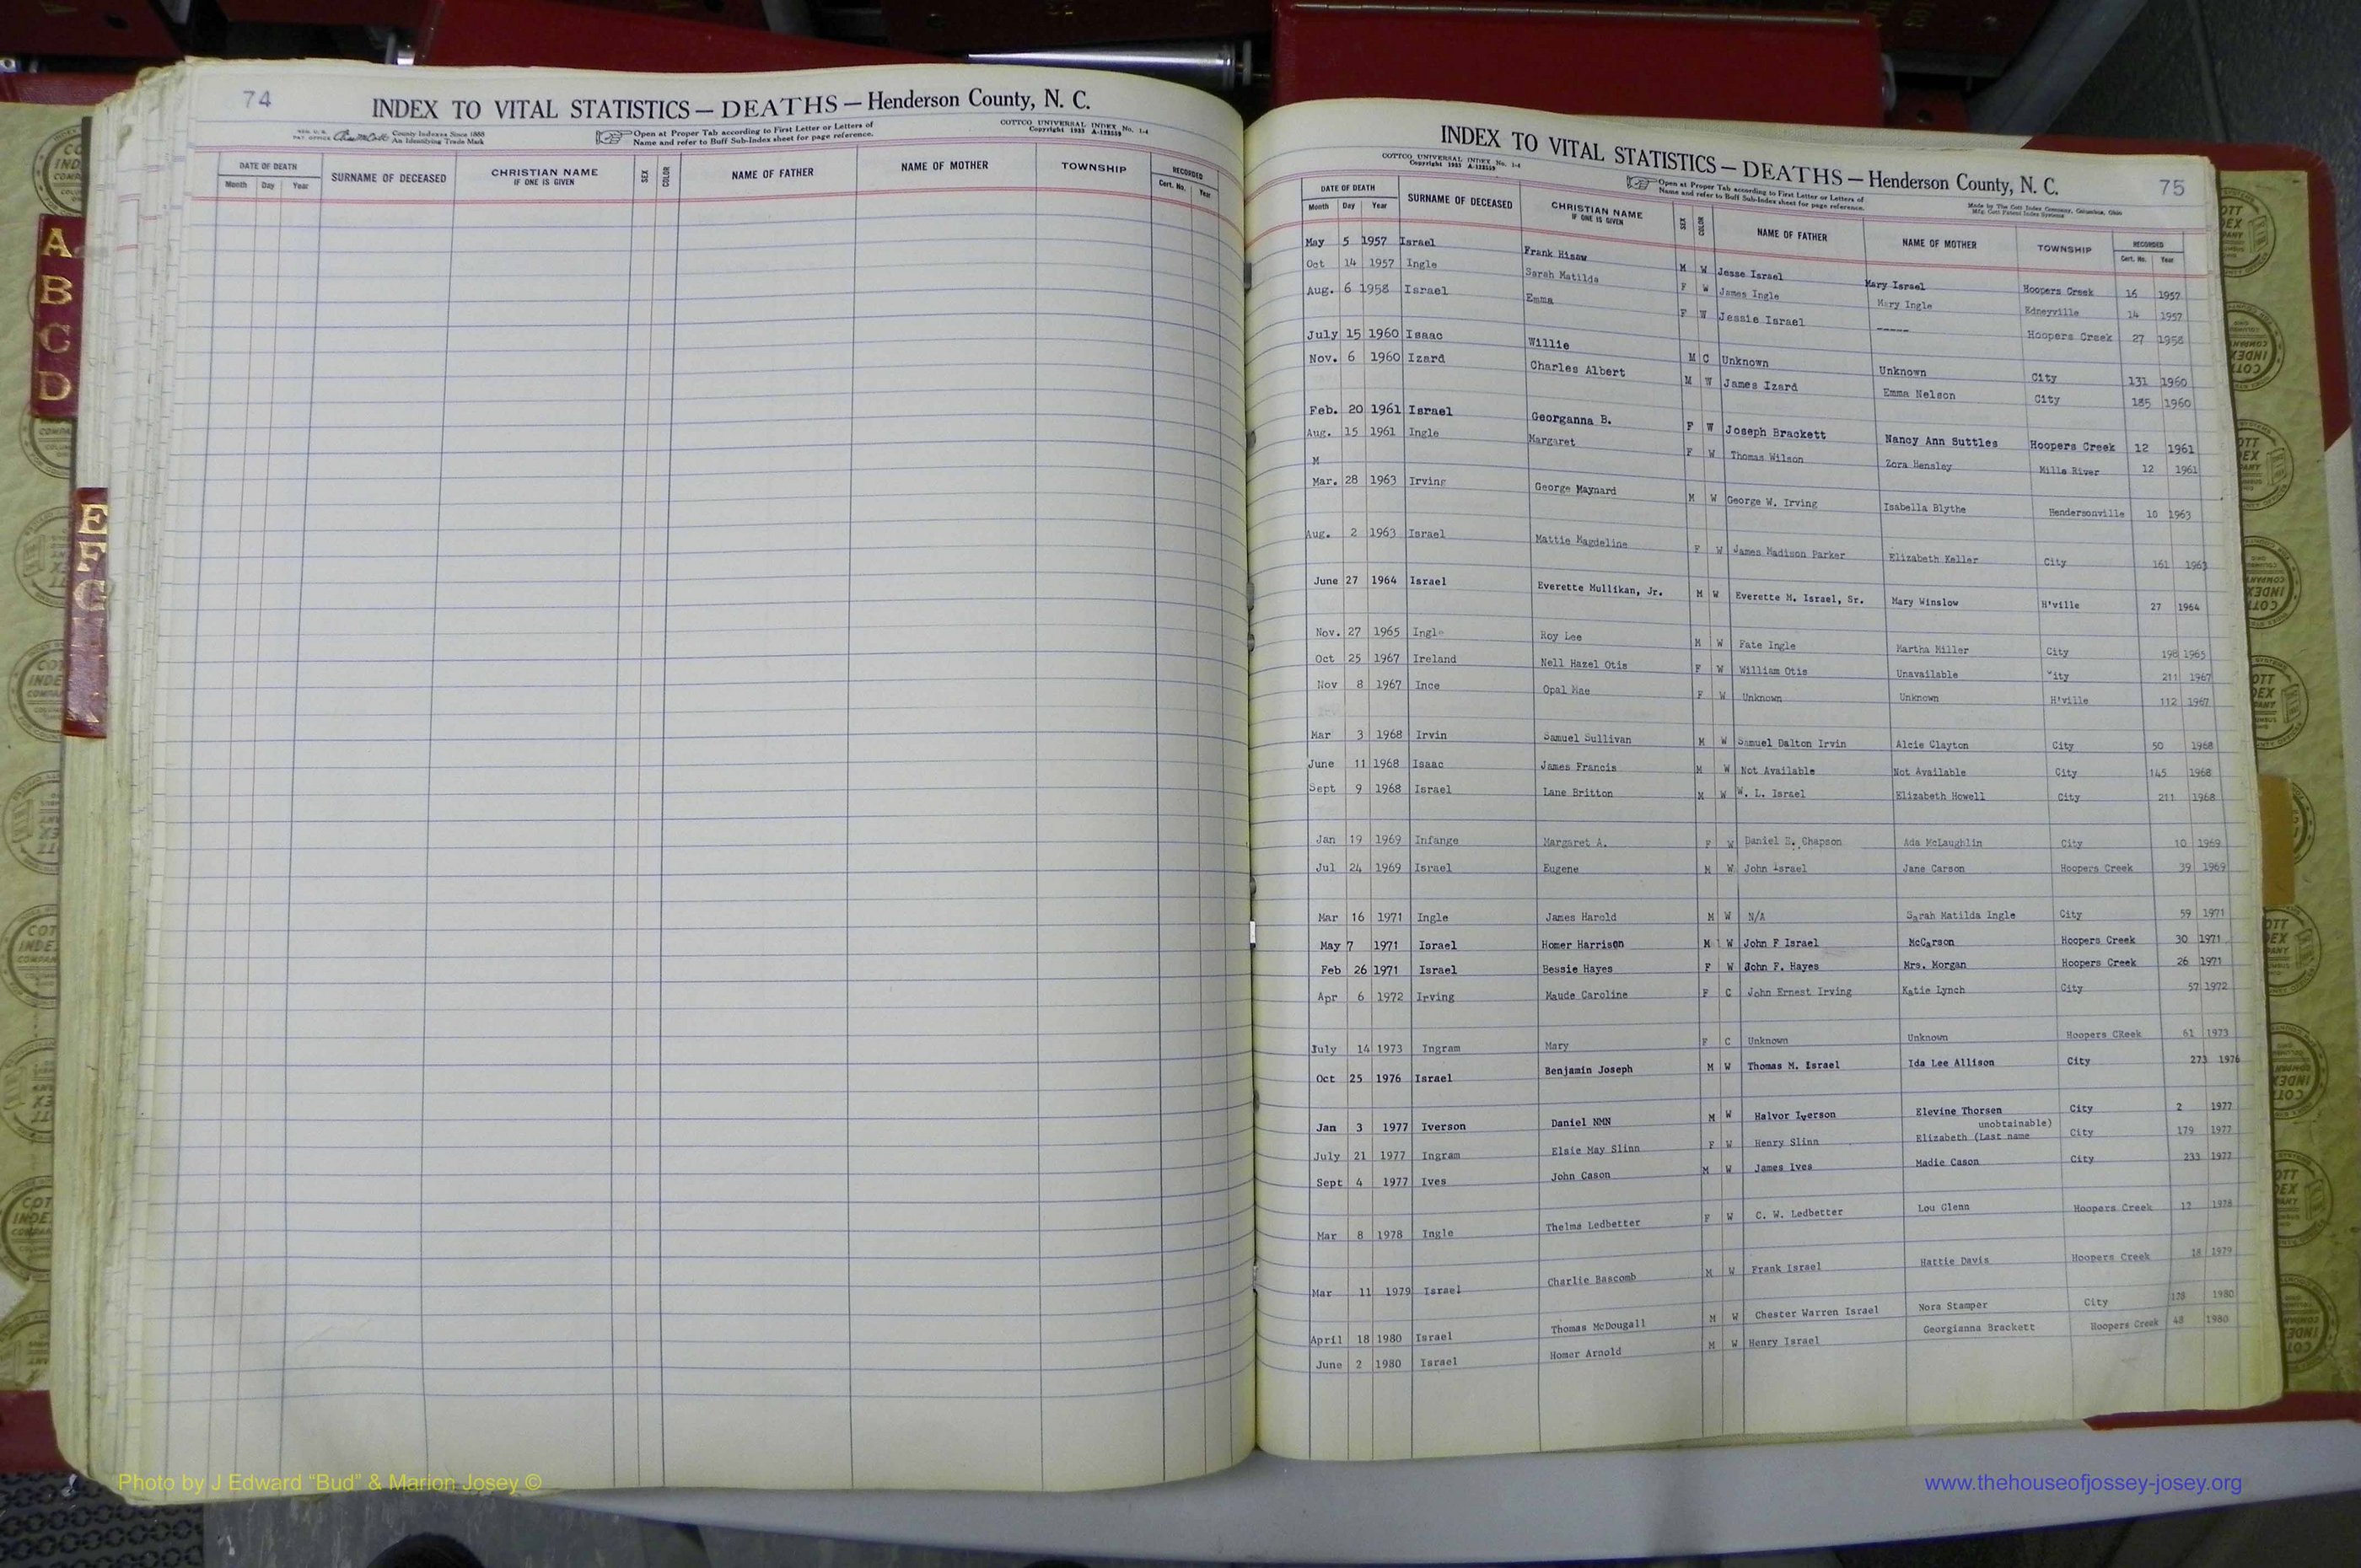 74
INDEX TO VITAL STATISTICS — DEATHS — Henderson County, N. C.
County Indexes Since 1888
An Identifying Trade Mark
Open at Proper Tab according to First Letter or Letters of
Name and refer to Buff Sub-Index sheet for page reference.
COTTCO UNIVERSAL INDEX No. 1-4
Copyright 1933 A-123559
DATE OF DEATH SURNAME OF DECEASED CHRISTIAN NAME SEX COLOR NAME OF FATHER NAME OF MOTHER TOWNSHIP RECORDED
Month Day Year IF ONE IS GIVEN Cert. No. Year
A
B
C
D
E
F
G
INDEX TO VITAL STATISTICS — DEATHS — Henderson County, N. C.
75
COTTCO UNIVERSAL INDEX No. 1-4
Copyright 1933 A-123559
Open at Proper Tab according to First Letter or Letters of
Name and refer to Buff Sub-Index sheet for page reference.
Made by The Cott Index Company, Columbus, Ohio
Mfg. Cott Patent Index Systems
DATE OF DEATH SURNAME OF DECEASED CHRISTIAN NAME SEX COLOR NAME OF FATHER NAME OF MOTHER TOWNSHIP RECORDED
Month Day Year IF ONE IS GIVEN Cert. No. Year
May 5 1957 Israel Frank Hisaw M W Jesse Israel Mary Israel Hoopers Creek 16 1957
Oct 14 1957 Ingle Sarah Matilda F W James Ingle Mary Ingle Edneyville 14 1957
Aug. 6 1958 Israel Emma F W Jessie Israel ----- Hoopers Creek 27 1958
July 15 1960 Isaac Willie M C Unknown Unknown City 131 1960
Nov. 6 1960 Izard Charles Albert M W James Izard Emma Nelson City 185 1960
Feb. 20 1961 Israel Georganna B. F W Joseph Brackett Nancy Ann Suttles Hoopers Creek 12 1961
Aug. 15 1961 Ingle Margaret F W Thomas Wilson Zora Hensley Mills River 12 1961
M
Mar. 28 1963 Irving George Maynard M W George W. Irving Isabella Blythe Hendersonville 10 1963
Aug. 2 1963 Israel Mattie Magdeline F W James Madison Parker Elizabeth Keller City 161 1963
June 27 1964 Israel Everette Mullikan, Jr. M W Everette M. Israel, Sr. Mary Winslow H'ville 27 1964
Nov. 27 1965 Ingle Roy Lee M W Fate Ingle Martha Miller City 198 1965
Oct 25 1967 Ireland Nell Hazel Otis F W William Otis Unavailable City 211 1967
Nov 8 1967 Ince Opal Mae F W Unknown Unknown H'ville 112 1967
Mar 3 1968 Irvin Samuel Sullivan M W Samuel Dalton Irvin Alcie Clayton City 50 1968
June 11 1968 Isaac James Francis M W Not Available Not Available City 145 1968
Sept 9 1968 Israel Lane Britton M W W. L. Israel Elizabeth Howell City 211 1968
Jan 19 1969 Infange Margaret A. F W Daniel E. Chapson Ada McLaughlin City 10 1969
Jul 24 1969 Israel Eugene M W John Israel Jane Carson Hoopers Creek 39 1969
Mar 16 1971 Ingle James Harold M W N/A Sarah Matilda Ingle City 59 1971
May 7 1971 Israel Homer Harrison M W John F Israel McCarson Hoopers Creek 30 1971
Feb 26 1971 Israel Bessie Hayes F W John F. Hayes Mrs. Morgan Hoopers Creek 26 1971
Apr 6 1972 Irving Maude Caroline F C John Ernest Irving Katie Lynch City 57 1972
July 14 1973 Ingram Mary F C Unknown Unknown Hoopers CReek 61 1973
Oct 25 1976 Israel Benjamin Joseph M W Thomas M. Israel Ida Lee Allison City 273 1976
Jan 3 1977 Iverson Daniel NMN M W Halvor Iverson Elevine Thorsen City 2 1977
unobtainable)
July 21 1977 Ingram Elsie May Slinn F W Henry Slinn Elizabeth (Last name City 179 1977
Sept 4 1977 Ives John Cason M W James Ives Madie Cason City 233 1977
Mar 8 1978 Ingle Thelma Ledbetter F W C. W. Ledbetter Lou Glenn Hoopers Creek 12 1978
Mar 11 1979 Israel Charlie Bascomb M W Frank Israel Hattie Davis Hoopers Creek 18 1979
April 18 1980 Israel Thomas McDougall M W Chester Warren Israel Nora Stamper City 128 1980
June 2 1980 Israel Homer Arnold M W Henry Israel Georgianna Brackett Hoopers Creek 48 1980
Photo by J Edward “Bud” & Marion Josey ©
www.thehouseofjossey-josey.org